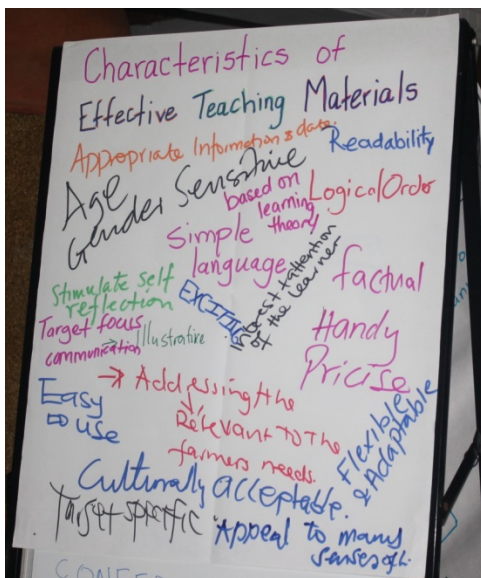 Characteristics of
Effective Teaching Materials
Appropriate Information & data.
Readability
Age
Gender Sensitive
based on
learning
theory
Logical Order
Simple
language
Interest + attention
of the learner
factual
Stimulate self
reflection
EXCITING
Target focus
communication
→ Illustrative
Handy
Pricise
Easy
⇨ use
→ Addressing the
Relevant to the
farmers needs.
Flexible
& Adaptable
Culturally acceptable.
Target specific
Appeal to many
senses